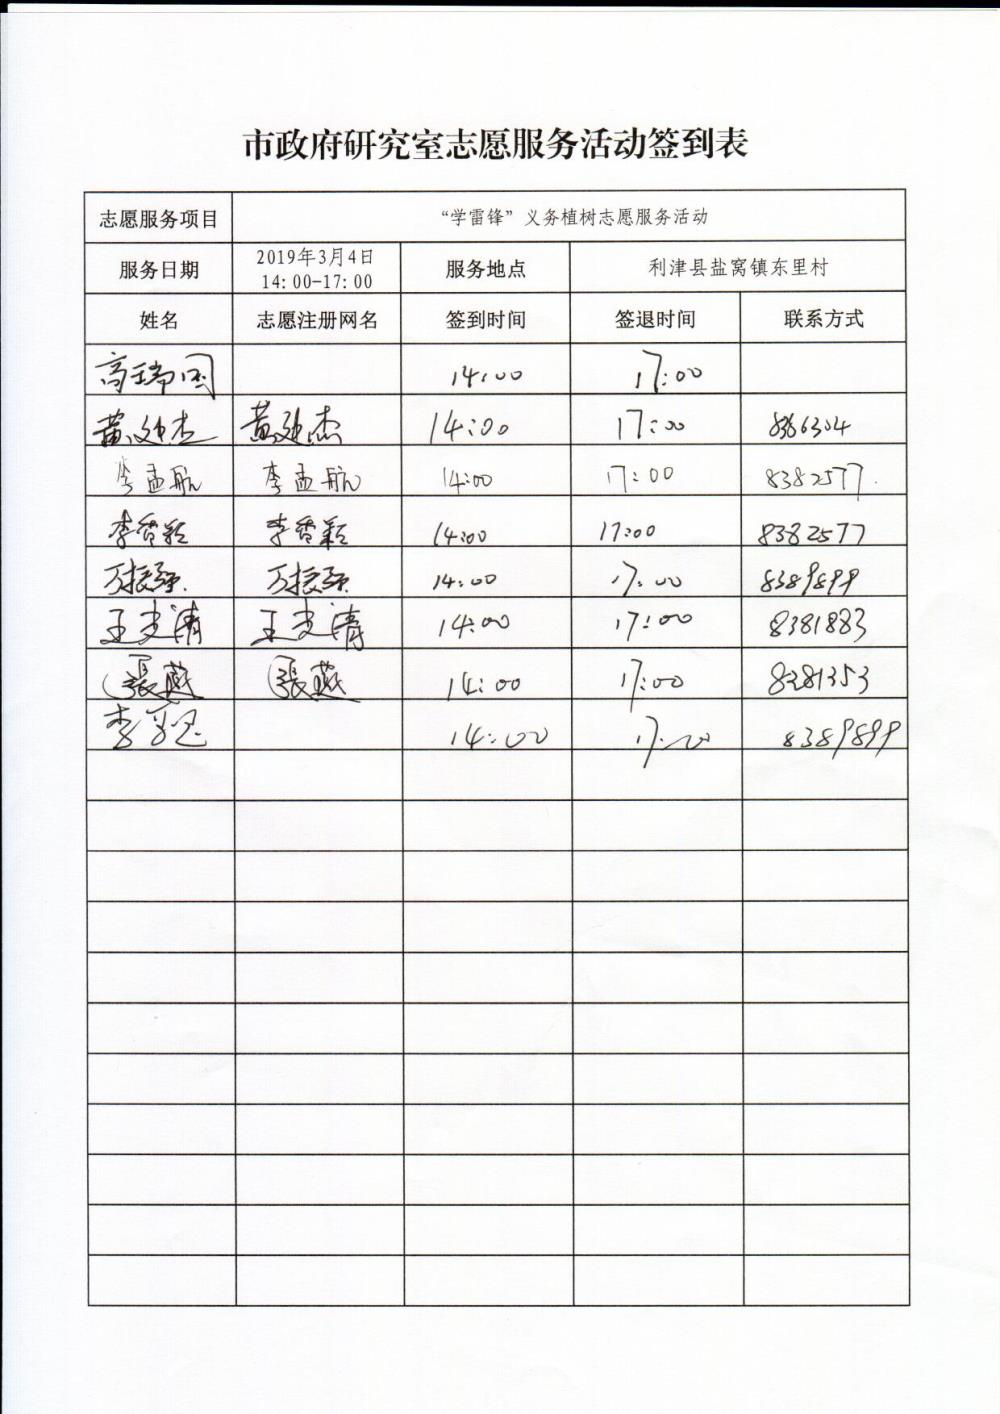 市政府研究室志愿服务活动签到表
志愿服务项目 “学雷锋”义务植树志愿服务活动
服务日期 2019年3月4日 14:00-17:00 服务地点 利津县盐窝镇东里村
姓名 志愿注册网名 签到时间 签退时间 联系方式
高瑞国 14:00 17:00
黄延杰 黄延杰 14:00 17:00 8386304
李孟航 李孟航 14:00 17:00 8382577
李香颖 李香颖 14:00 17:00 8382577
万振强 万振强 14:00 17:00 8389899
王文清 王文清 14:00 17:00 8381883
張燕 張燕 14:00 17:00 8381353
李 14:00 17:00 8389899